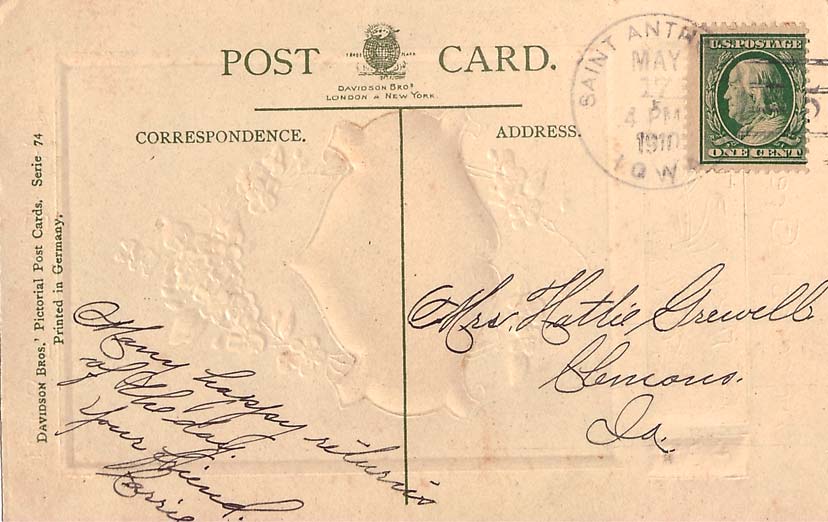 POST CARD.
DAVIDSON BROS
LONDON & NEW YORK.
CORRESPONDENCE.
ADDRESS.
SAINT ANTH
MAY
17
4 PM
1910
IOWA
U.S. POSTAGE
ONE CENT
DAVIDSON BROS.' Pictorial Post Cards, Serie 74
Printed in Germany.
Many happy returns
of the day.
Your friend.
Mrs. Hattie Grewell
Clemons.
Ia.